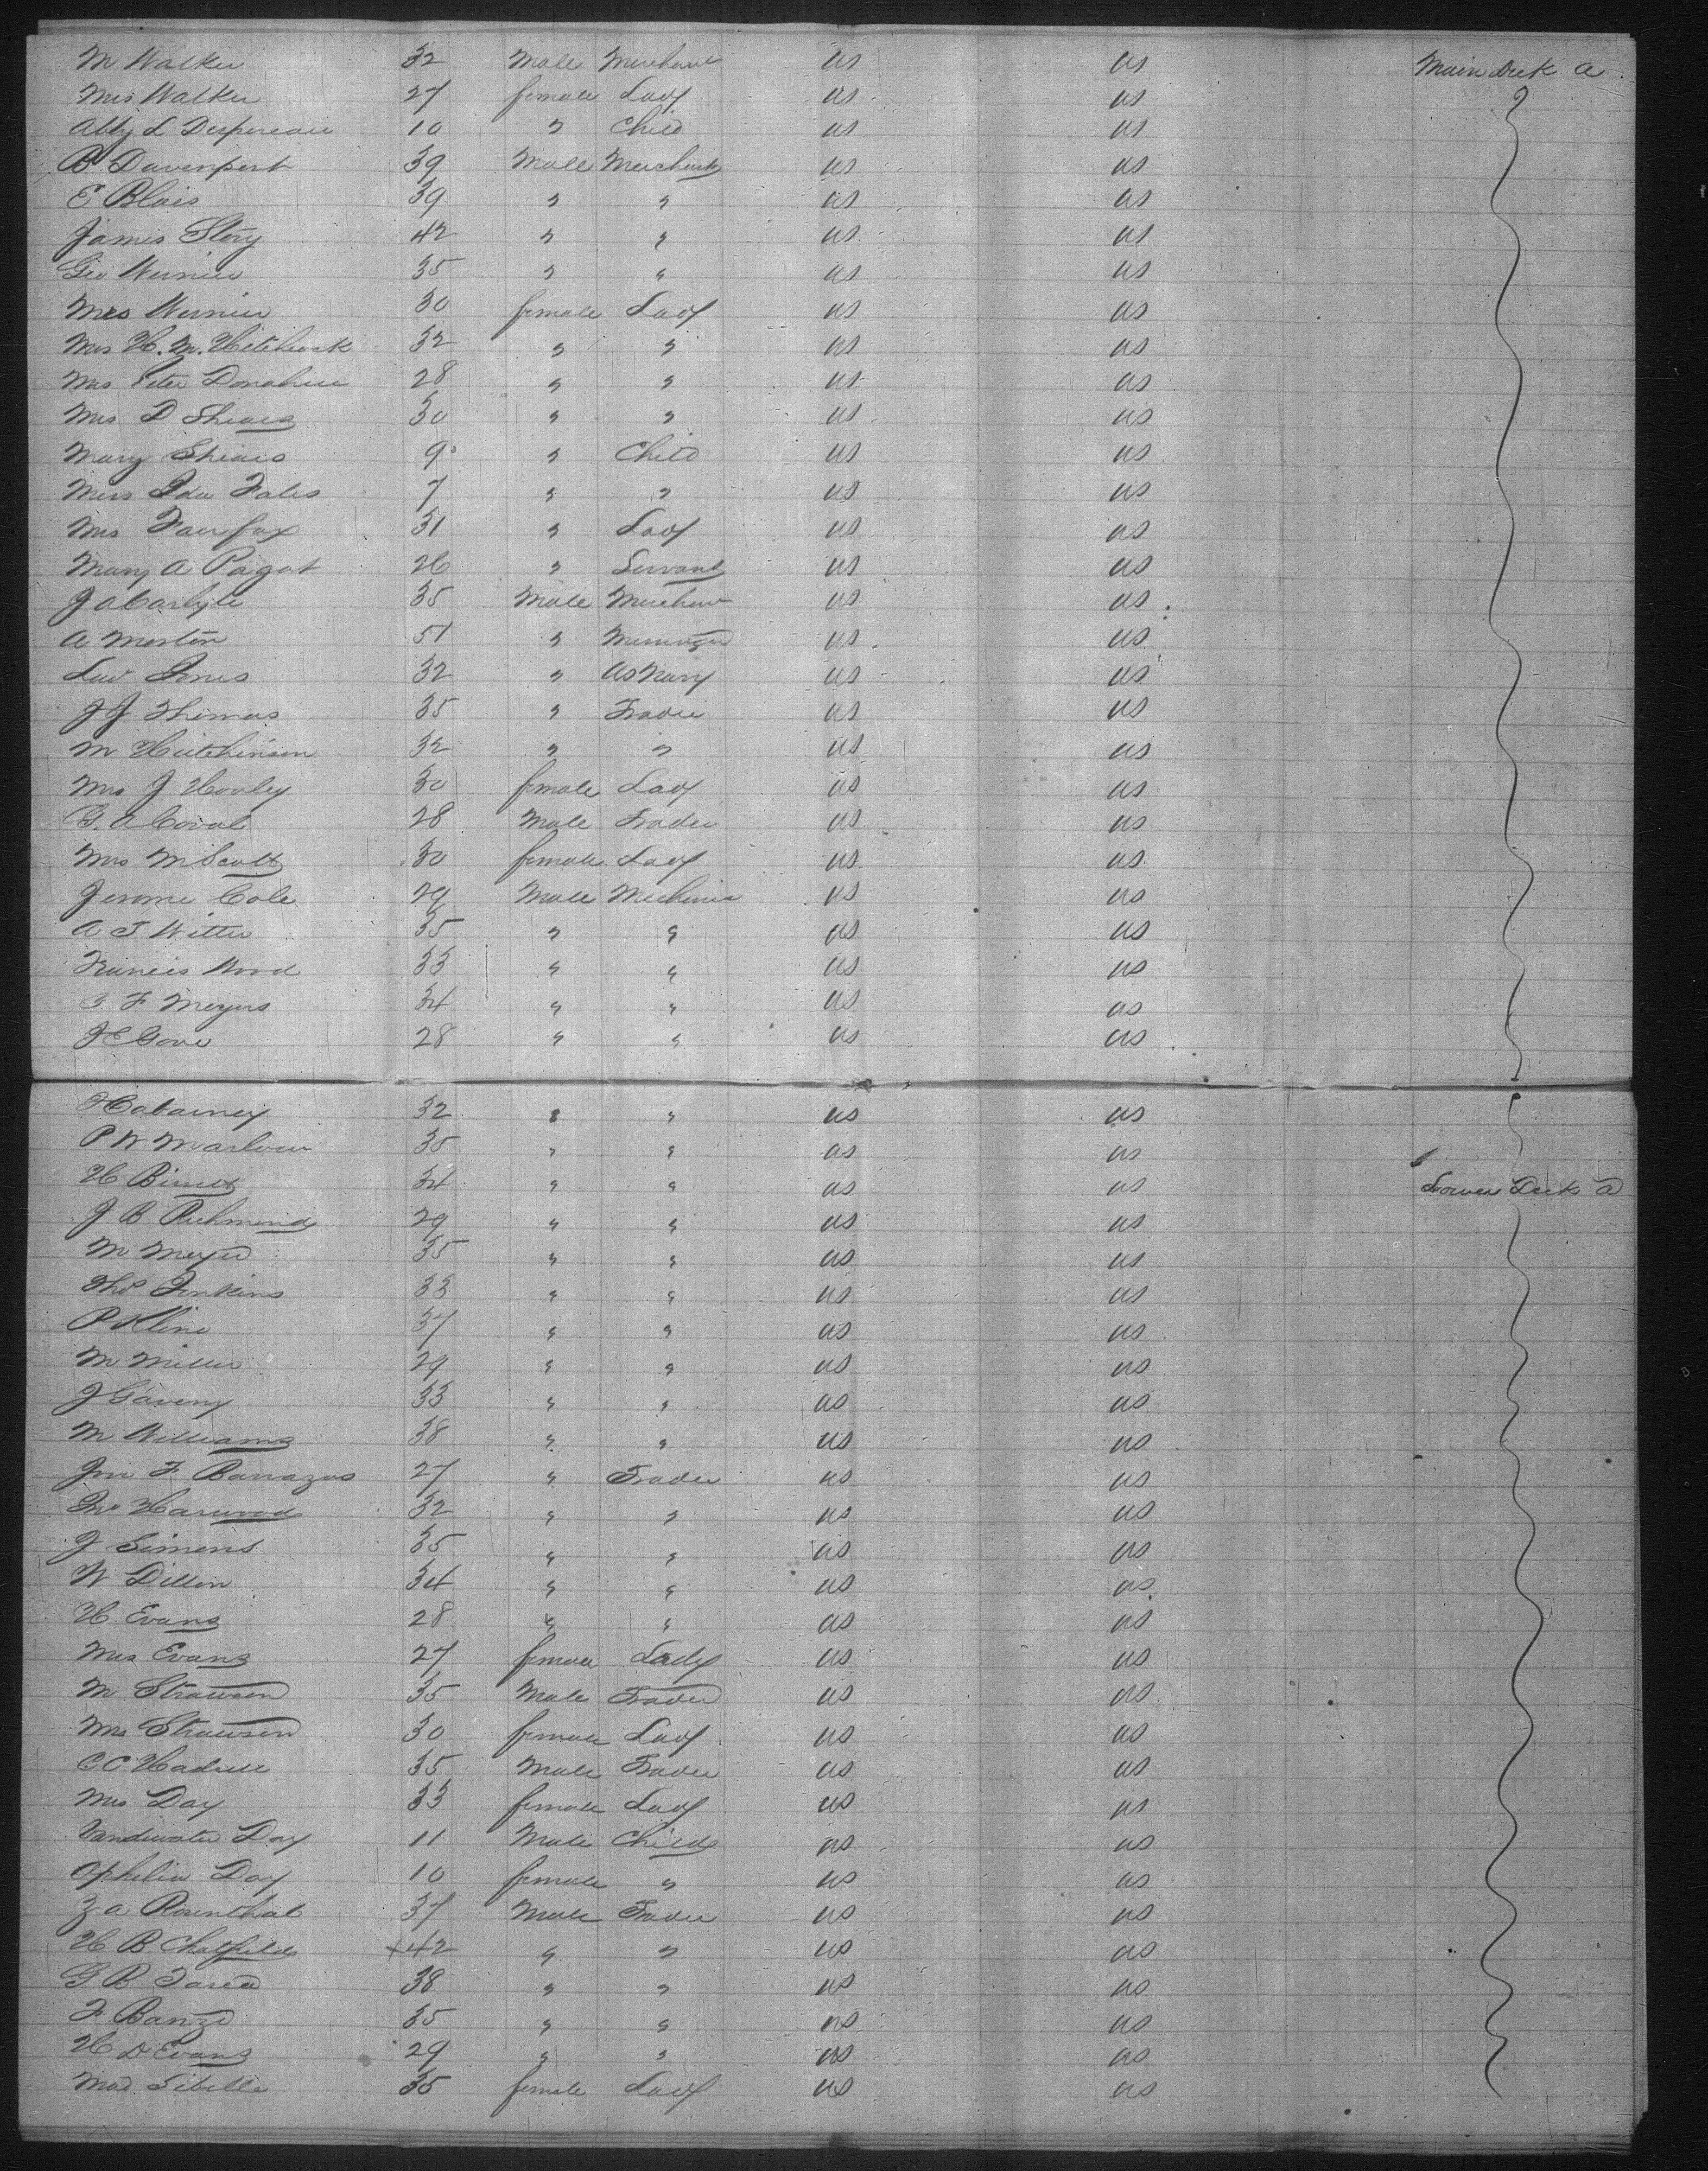 M Walker 32 Male Merchant US US Main Deck a
Mrs Walker 27 female Lady US US
Abby L Despereau 10 " Child US US
B Davenport 39 Male Merchant US US
E Blais 39 " " US US
James Story 42 " " US US
Geo Wernier 35 " " US US
Mrs Wernier 30 female Lady US US
Mrs H. M. Hitchcock 32 " " US US
Mrs Peter Donahue 28 " " US US
Mrs D Shears 30 " " US US
Mary Shears 9 " Child US US
Miss Ida Fales 7 " " US US
Mrs Fairfax 31 " Lady US US
Mary A Pagot 26 " Servant US US
J A Carlyle 35 Male Merchant US US
A Morton 51 " Messenger US US
Jones 32 " US Navy US US
J J Thomas 35 " Trader US US
M Hutchinson 32 " " US US
Mrs J Hooley 30 female Lady US US
G. A Coval 28 Male Trader US US
Mrs M Scott 30 female Lady US US
Jerome Cole 29 Male Mechanic US US
A T Witter 35 " " US US
Francis Wood 33 " " US US
F Meyers 34 " " US US
J E Gove 28 " " US US
32 " " US US
P W Marlow 35 " " US US
H 34 " " US US Lower Deck a
J B Richmond 29 " " US US
M Meyer 35 " " US US
Thos Jenkins 33 " " US US
P Kline 37 " " US US
M Miller 29 " " US US
J Gaveny 33 " " US US
M Williams 38 " " US US
F Barrazas 27 " Trader US US
Jno Harwood 32 " " US US
J Simons 35 " " US US
W Dillon 34 " " US US
H Evans 28 " " US US
Mrs Evans 27 female Lady US US
M Strawson 35 Male Trader US US
Mrs Strawson 30 female Lady US US
C C Hadsell 35 Male Trader US US
Mrs Day 33 female Lady US US
Vandewater Day 11 Male Child US US
Ophelia Day 10 female " US US
Z A Rosenthal 37 Male Trader US US
H B Chatfield 42 " " US US
G B 38 " " US US
F Banze 35 " " US US
H D Evans 29 " " US US
Mad. Sibelle 35 female Lady US US